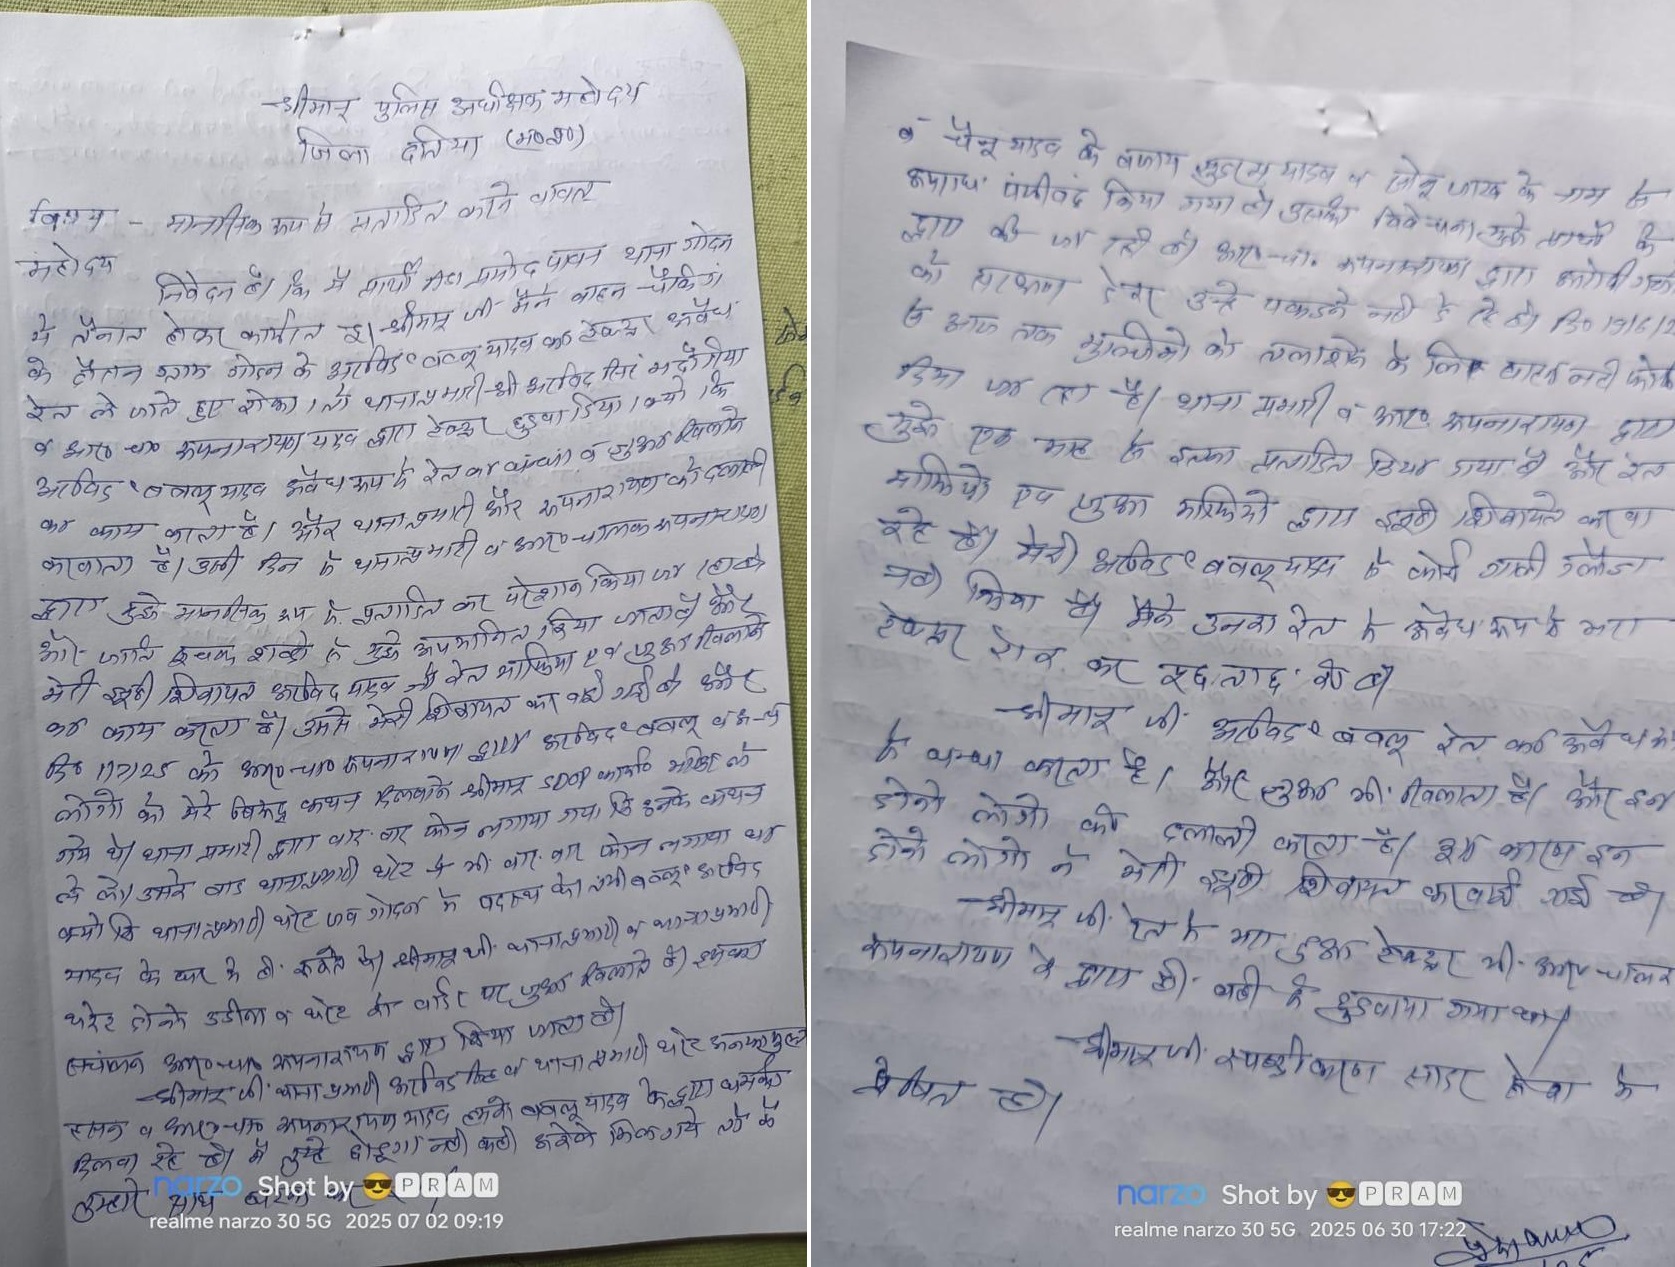 श्रीमान पुलिस अधीक्षक महोदय
जिला दतिया (म०प्र०)
विषय - मानसिक रूप से प्रताडित करने वावत
महोदय
निवेदन है। कि मैं प्रार्थी प्रमोद पावन थाना गोदन
मे तैनात होकर कार्यरत हू। श्रीमान जी मैने वाहन चैकिंग
के दौरान ग्राम गोदन के अरविंद बबलू यादव का टेक्टर अवैध
रेत ले जाते हुए रोका। तो थाना प्रभारी श्री अरविंद सिंह भदौरिया
व आर० चा० रूपनारायण यादव द्वारा टेक्टर छुडवा दिया। क्यो कि
अरविंद बबलू यादव अवैध रूप से रेत का धंधा व जुआ खिलाने
का काम करता है। और थाना प्रभारी और रूपनारायण की दलाली
करवाता है। उसी दिन से थाना प्रभारी व आर० चालक रूपनारायण
द्वारा मुझे मानसिक रूप से प्रताडित कर परेशान किया जा रहा है
और जाति सूचक शब्दो से मुझे अपमानित किया जाता है और
मेरी झूठी शिकायत अरविंद यादव जो रेत माफिया एवं जुआ खिलाने
का काम करता है। उससे मेरी शिकायत करवाई गई है और
दि० 1/7/25 को आर० चा० रूपनारायण द्वारा अरविंद बबलू व
लोगो को मेरे विरूद्ध कथन दिलवाने श्रीमान SDOP कार्या०
गये थे। थाना प्रभारी द्वारा वार-वार फोन लगाया गया कि इनके कथन
ले लो। उसके बाद थाना प्रभारी थरेट से भी वार-वार फोन लगाया था
क्यो कि थाना प्रभारी थरेट जब गोदन मे पदस्थ थे। तभी बबलू अरविंद
यादव के घर मे ही रूकते थे। श्रीमान जी थाना प्रभारी व थाना प्रभारी
थरेट दोनो उडीना व थरेट की वार्डर पर जुआ खिलाते है। इसका
संचालन आर० चा० रूपनारायण द्वारा किया जाता है।
श्रीमान जी थाना प्रभारी अरविंद सिंह व थाना प्रभारी थरेट
व आर० चा० रूपनारायण यादव हमको बबलू यादव के द्वारा धमकी
दिलवा रहे है। मै तुम्हे छोडूगा नही कही अकेले मिल गये तो मै
तुम्हारे साथ
व चैनू यादव के बजाय यादव व सोनू जाटव के नाम से
अपराध पंजीवद्द किया गया है। उसकी विवेचना मुझे प्रार्थी के
द्वारा की जा रही है। आर० चा० रूपनारायण द्वारा
को संरक्षण देकर उन्हे पकडने नही दे रहे है। दि० 19/6/2
से आज तक मुल्जिमो को तलाशने के लिए नही
दिया जा रहा है। थाना प्रभारी व आर० रूपनारायण द्वारा
मुझे एक माह से इतना प्रताडित किया गया है और रेत
माफियो एवं जुआ माफियो द्वारा झूठी शिकायते करवा
रहे है। मेरी अरविंद बबलू यादव से कोई गाली गलौज
नही किया है। मैने उनका रेत से अवैध रूप से भरा
टेक्टर रोक कर पूछताछ की है।
श्रीमान जी अरविंद बबलू रेत का अवैध
से धन्धा करता है। और जुआ भी खिलाता है। और इन
दोनो लोगो की दलाली करता है। इस कारण इन
दोनो लोगो ने मेरी झूठी शिकायत करवाई गई है।
श्रीमान जी रेत से भरा हुआ टेक्टर भी आर० चालक
रूपनारायण के द्वारा ही वही से छुडवाया गया था।
श्रीमान जी स्पष्टीकरण सादर सेवा मे
प्रेषित है।
narzo Shot by 😎 PRAM
realme narzo 30 5G 2025 07 02 09:19
narzo Shot by 😎 PRAM
realme narzo 30 5G 2025 06 30 17:22